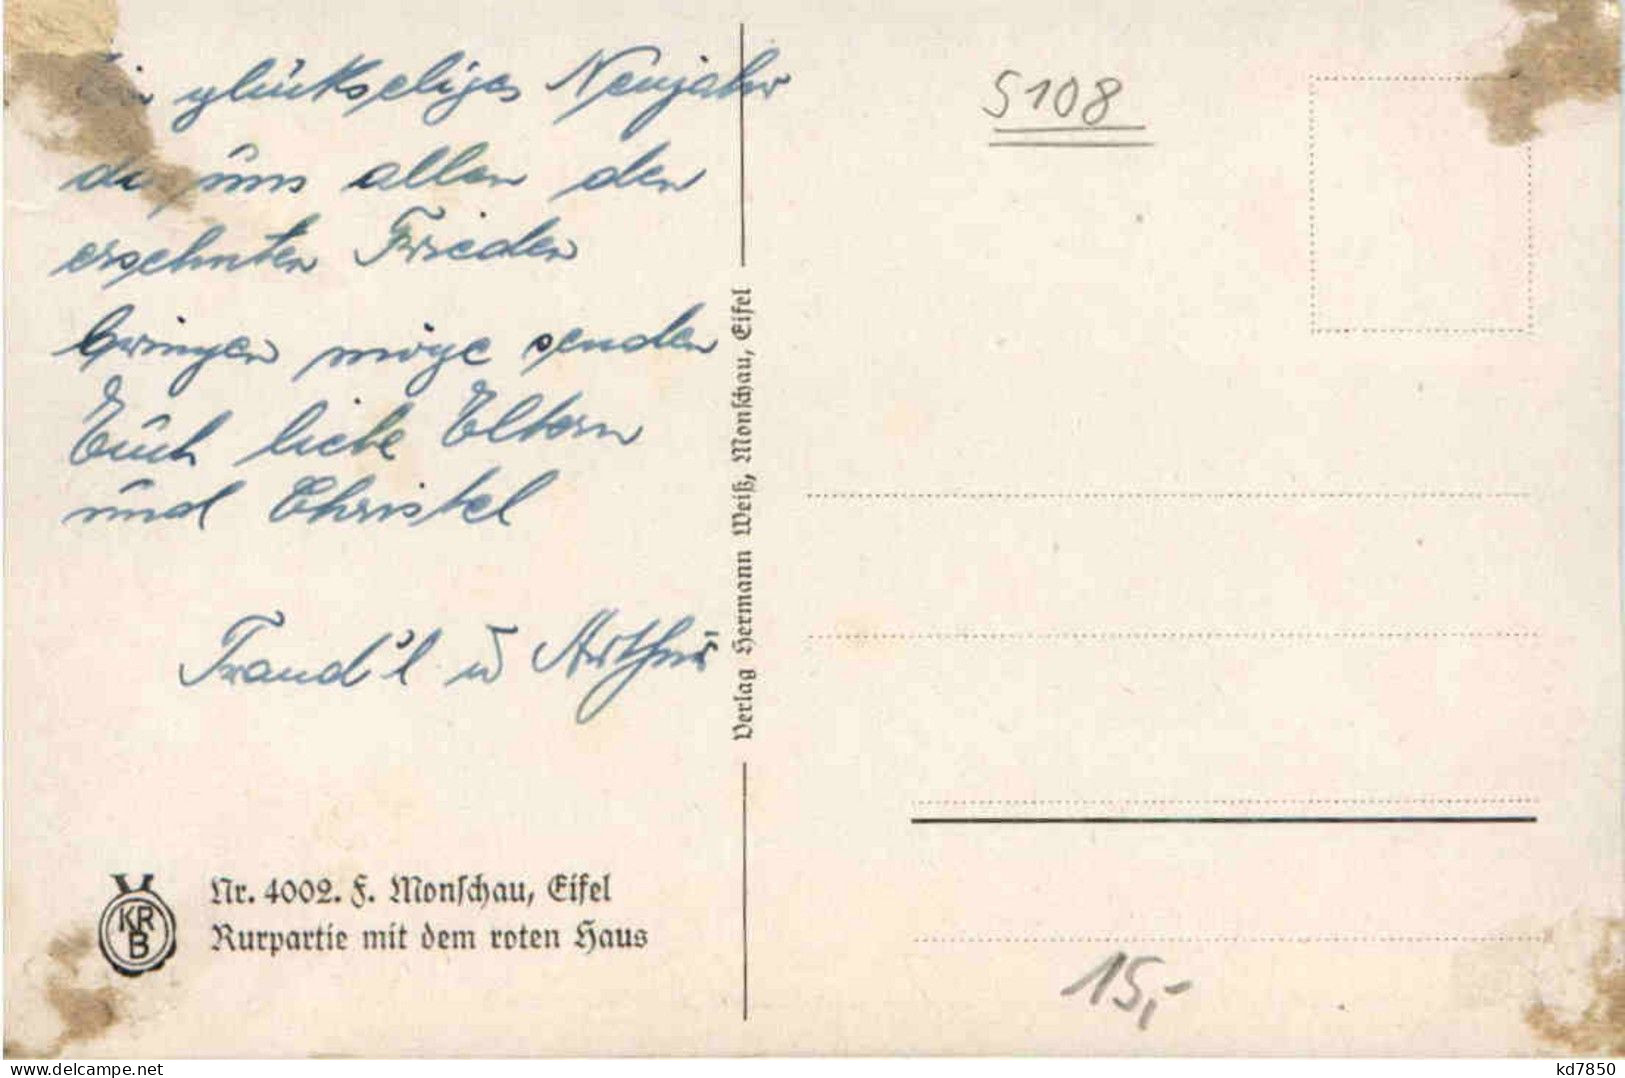 Ein glückseliges Neujahr
da uns allen den
ersehnten Frieden
bringen möge senden
Euch liebe Eltern
und Christel
Traud'l u Arthur
Nr. 4002. F. Monschau, Eifel
Rurpartie mit dem roten Haus
KR
B
Verlag Hermann Weiß, Monschau, Eifel
5108
15,-
kd7850